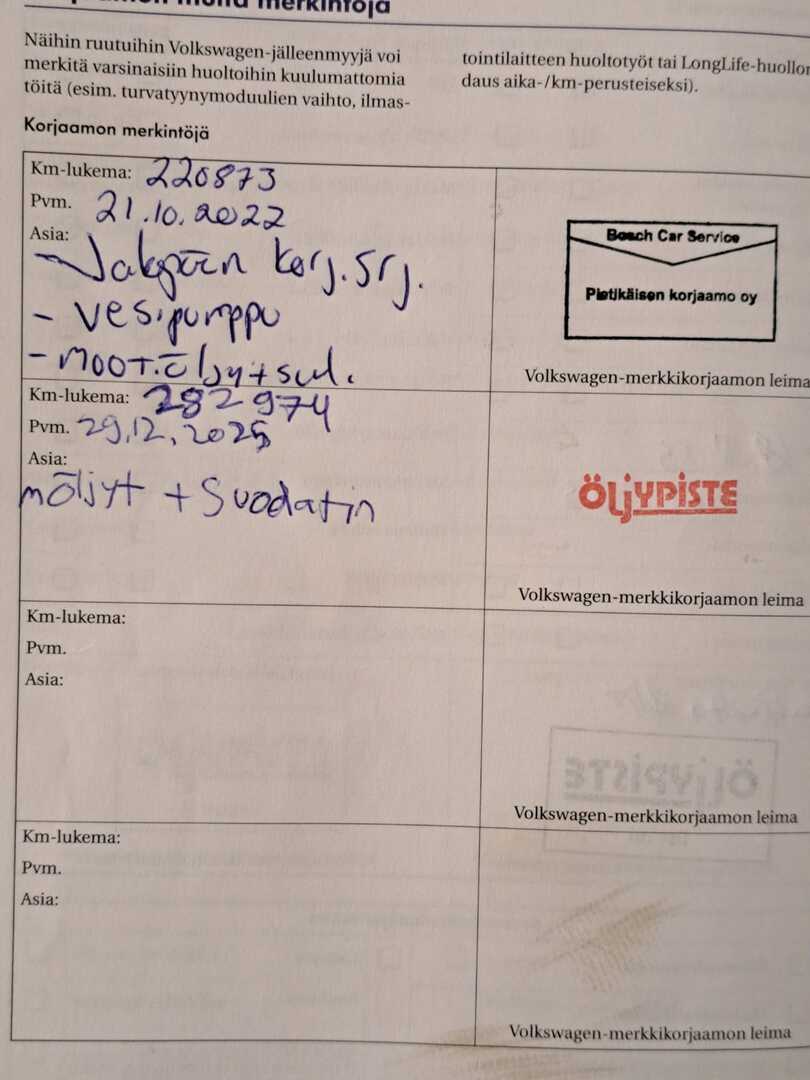 Korjaamon muita merkintöjä
Näihin ruutuihin Volkswagen-jälleenmyyjä voi
merkitä varsinaisiin huoltoihin kuulumattomia
töitä (esim. turvatyynymoduulien vaihto, ilmas-
tointilaitteen huoltotyöt tai LongLife-huollon
daus aika-/km-perusteiseksi).
Korjaamon merkintöjä
Km-lukema: 220873
Pvm. 21.10.2022
Asia:
- Jakopään korj.srj.
- vesipumppu
- moot.öljy+sul.
Bosch Car Service
Pietikäisen korjaamo oy
Volkswagen-merkkikorjaamon leima
Km-lukema: 282974
Pvm. 29.12.2025
Asia:
möljyt + Suodatin
ÖLJYPISTE
Volkswagen-merkkikorjaamon leima
Km-lukema:
Pvm.
Asia:
Volkswagen-merkkikorjaamon leima
Km-lukema:
Pvm.
Asia:
Volkswagen-merkkikorjaamon leima